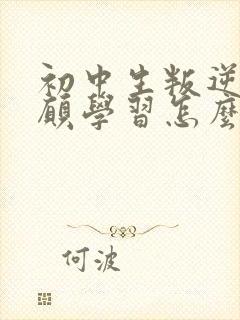 初中生叛逆
顧學習怎麽
何波